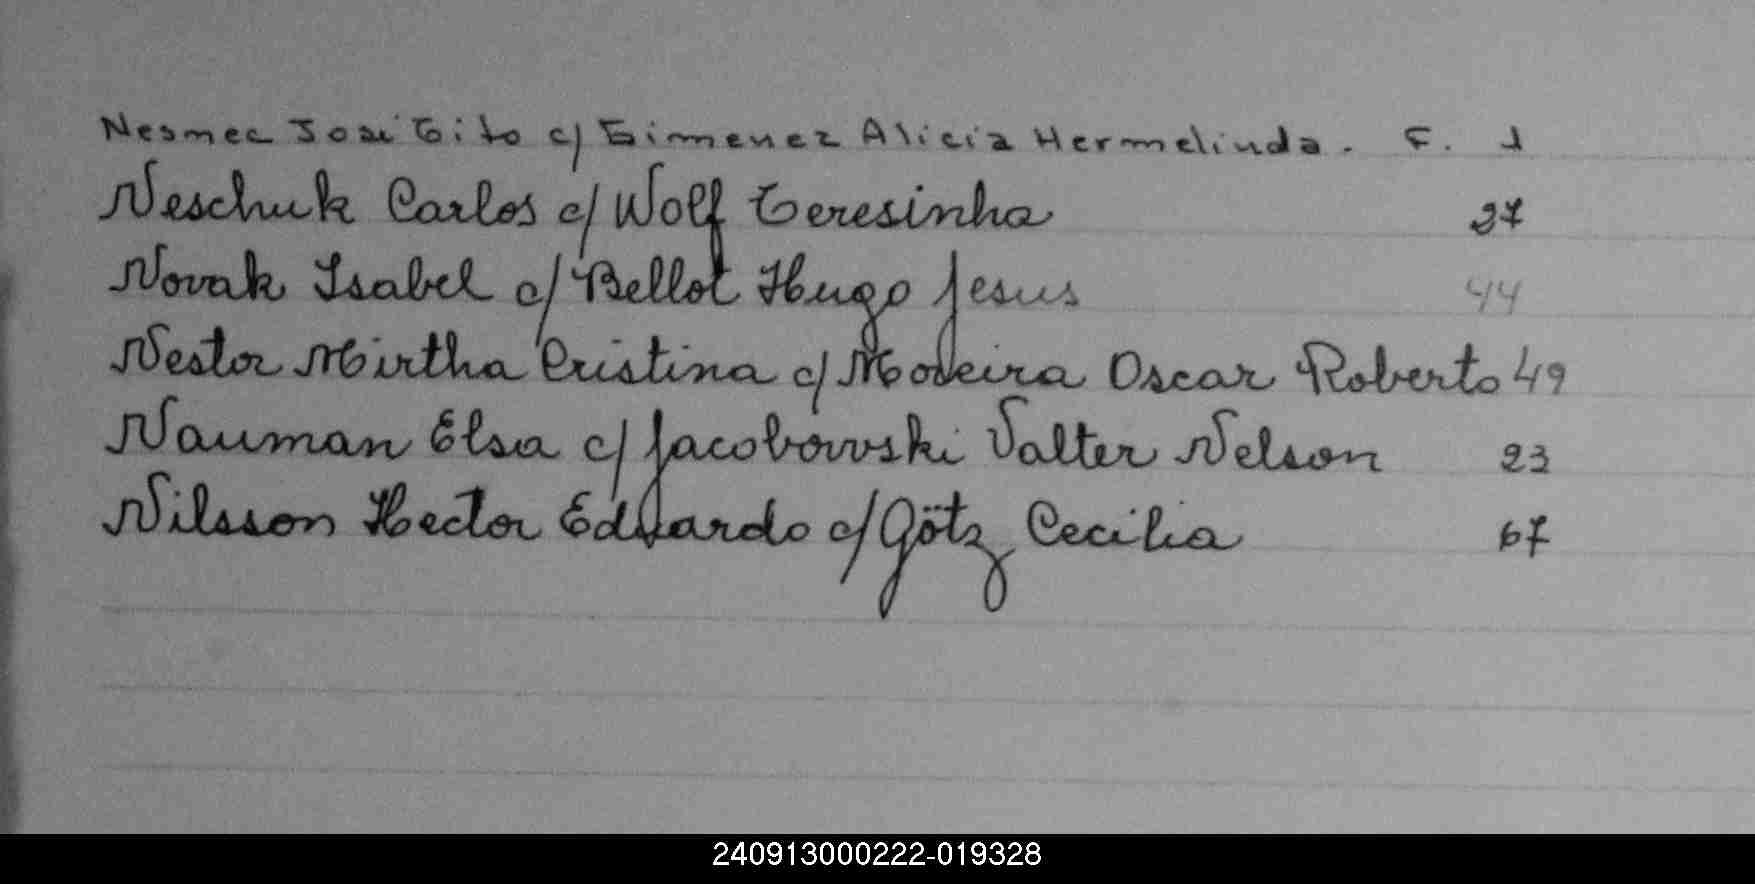 Nesmec José Tito c/ Gimenez Alicia Hermelinda. F. 1
Neschuk Carlos c/ Wolf Teresinha 37
Novak Isabel c/ Bellot Hugo Jesus 44
Nestor Mirtha Cristina c/ Moreira Oscar Roberto 49
Nauman Elsa c/ Jacobowski Valter Nelson 23
Nilsson Hector Eduardo c/ Götz Cecilia 67
240913000222-019328